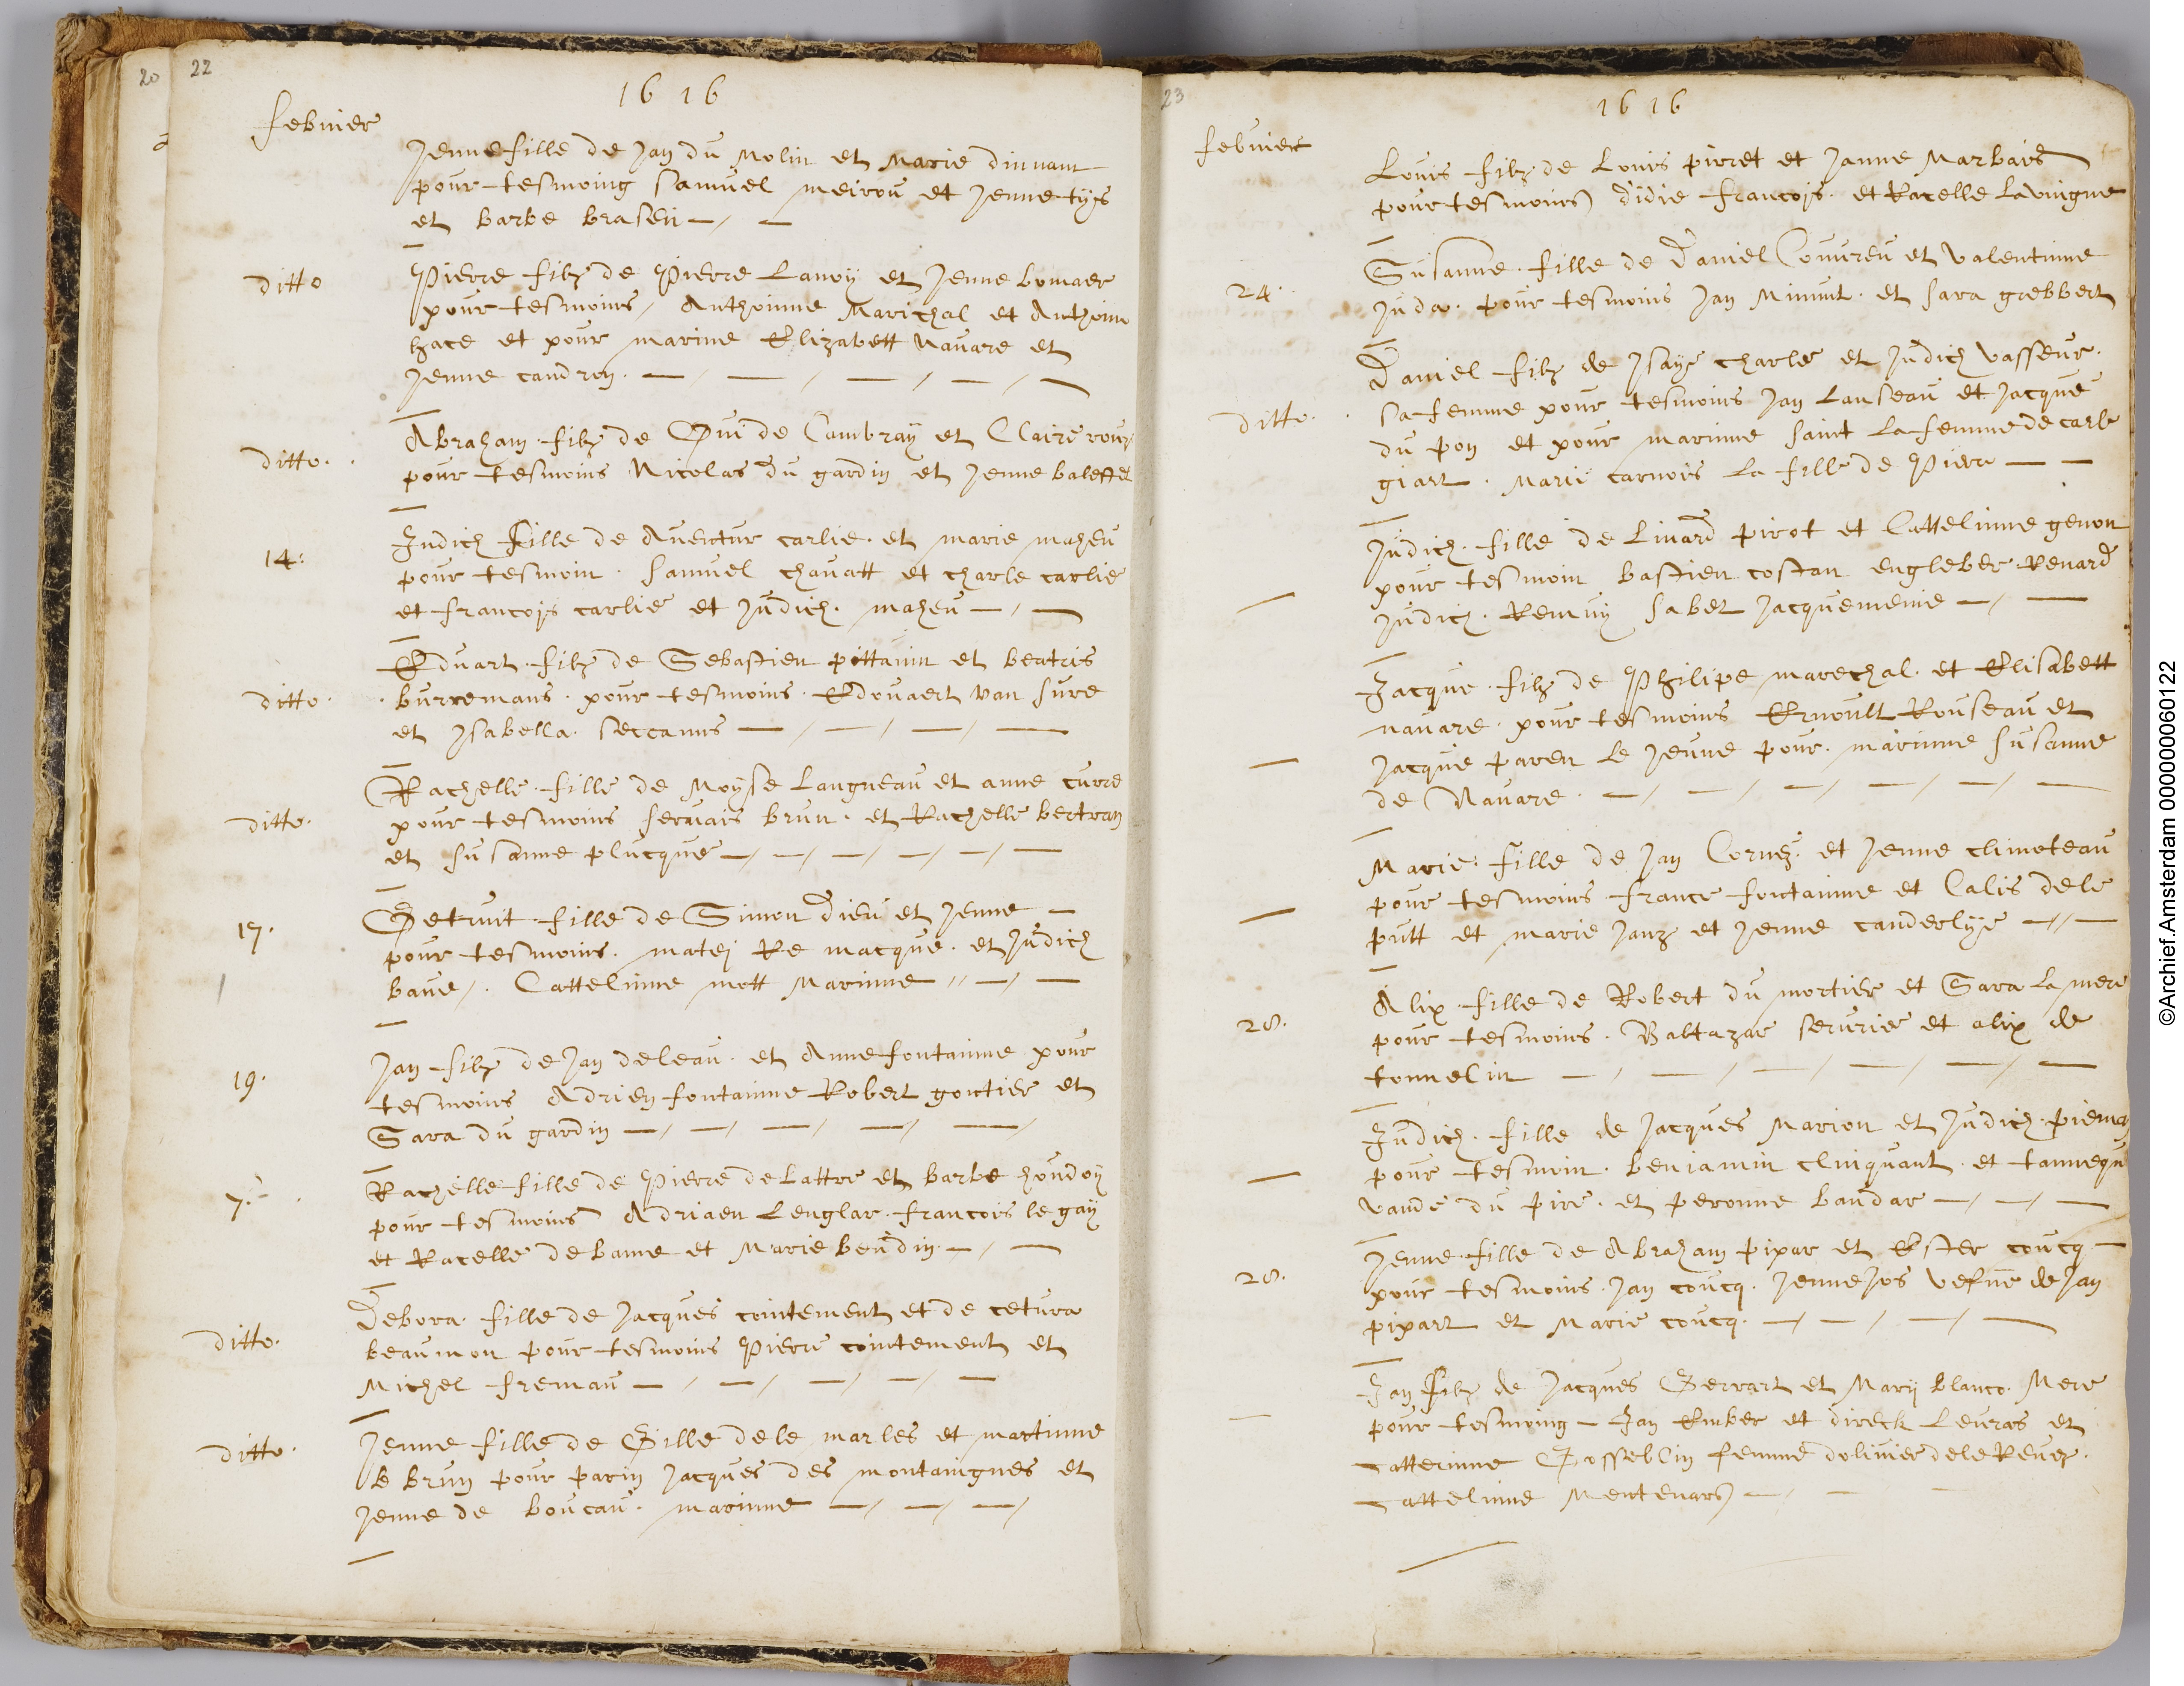 20
22
1616
febvrier
Jenne fille de Jan du Molin et Marie dinnant
pour tesmoing Samuel meirou et Jenne tijs
et barbe brasen
ditto
Pierre filz de Pierre Lanoy et Jenne bomaer
pour tesmoins, Anthoinne Marichal et Anthoin
hace et pour marine Elizabett Navare et
Jenne candron.
ditto.
Abraham filz de Gui de Cambray et Claire
pour tesmoins Nicolas du gardin et Jenne
14:
Judich fille de Aventur carlie. et marie maheu
pour tesmoin. Samuel chavatt et charle carlie
et francois carlie et Judich. maheu
ditto.
Eduart filz de Sebastien pottavin et beatris
burremans. pour tesmoins. Edouaert van sure
et Isabella. seccanus
ditto.
Rachelle. fille de Moyse Laugneau et anne curre
pour tesmoins servais brun. et Rachelle bertran
et susanne plucque
17.
Getruit fille de Simon dieu et Jenne
pour tesmoins. matej Re macque. et Judich
bave. Cattelinne mott Marinne
19.
Jan filz de Jan deleau. et Anne fontainne pour
tesmoins Adrien fontainne Robert goutier et
Sara du gardin
7.
Rachelle fille de Pierre de Lattre et barbe houdoy
pour tesmoins Adriaen Lenglar. francois le gay
et Racelle de bame et Marie beudin.
ditto.
Debora. fille de Jacques cointement et de cetura
beaumon pour tesmoins Pierre cointement et
Michel fremau
ditto.
Jenne fille de Gille dele marles et martinne
le brun pour parin Jacques des montaingnes et
Jenne de boucau. marinne
23
1616
febvrier
Louis filz de Louis pirret et Janne Marbais
pour tesmoins didie francojs. et Racelle Lavingne
24.
Susanne. fille de Daniel Couvreu et valentinne
Juda. pour tesmoins Jan Minuit. et sara grebbert
ditto.
Daniel filz de Isaye charle et Judich vasseur.
sa femme pour tesmoins Jan Lanseau et Jacque
du pon et pour marinne saint La femme de carle
giart. Marie carnois La fille de Piere
Judich. fille de Linard pirot et Cattelinne genon
pour tesmoin bastien costan engleber Renard
Judich. Remuy sabet Jacquemenie
Jacque. filz de Philipe marechal. et Elisabett
navare. pour tesmoins Ernoult Rouseau et
Jacque paren le Jeune pour. marinne Susanne
de Navare.
Marie: fille de Jan Cornez. et Jenne climoteau
pour tesmoins france fontainne et Calis dele
putt et marie Janz et Jenne canderlije
28.
Alix fille de Robert du mortier et Sara La mere
pour tesmoins. Baltazar serurie et alix de
tonnelin
Judich. fille de Jacques Marion et Judich.
pour tesmoin. beniamin clinquant. et
vande du pire. et peronne bandar
28.
Jenne. fille de Abraham pixar et Ester coucq
pour tesmoins. Jan coucq. Jenne Jos vefue de Jan
pixart et Marie coucq.
Jan filz de Jacques Gerrart et Marij blanco. Mere
pour tesmoing Jan Ember et direck Levras et
Catterinne Gossellin femme dolivier dele Reuez.
Cattelinne Mentenars
©Archief.Amsterdam 000000060122